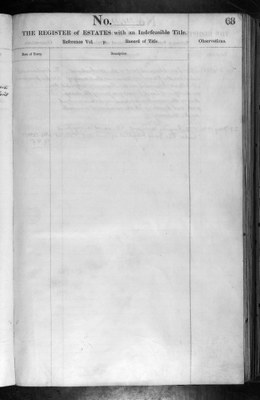 No. 68
THE REGISTER of ESTATES with an Indefeasible Title.
Reference Vol. p. Record of Title. Observations.
Date of Entry. Description.